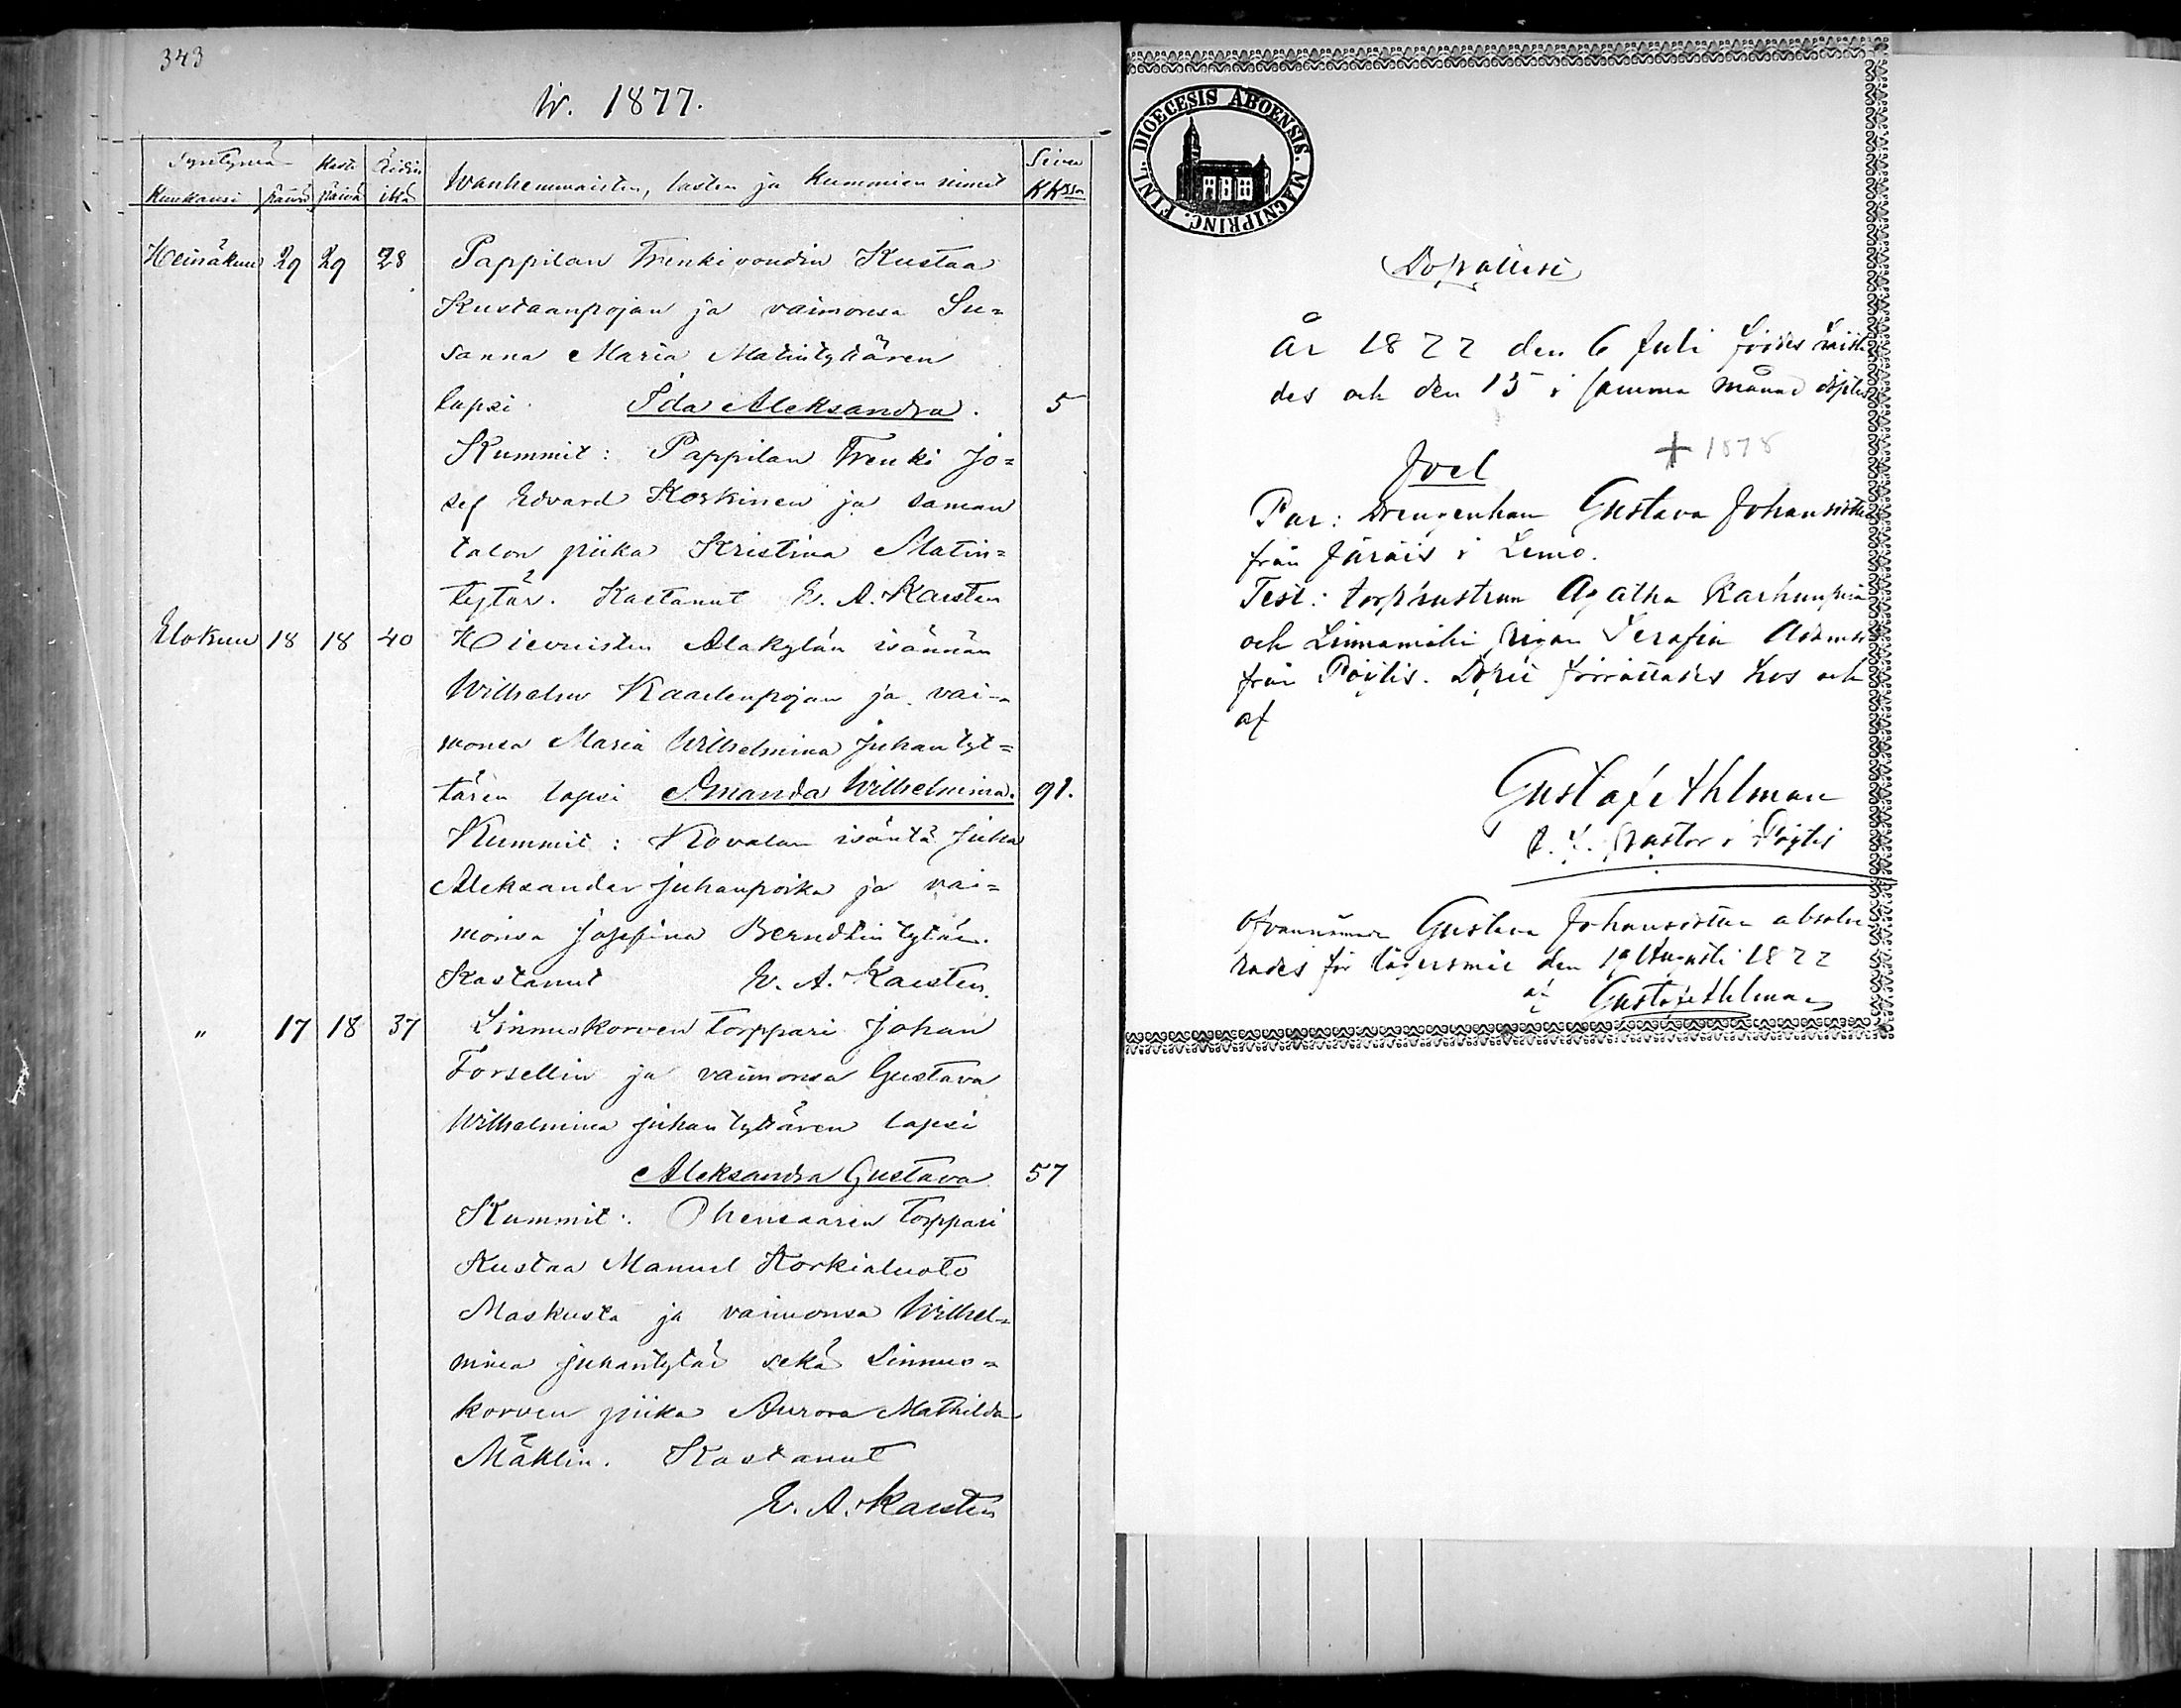 343
W. 1877.
Syntymä Kaste Äidin Sivu
Kuukausi päivä päivä ikä Wanhemmaisten, lasten ja kummien nimet KKssa
Heinäkuu 29 29 28 Pappilan Trenkivoudin Kustaa
Kustaanpojan ja vaimonsa Su=
sanna Maria Matintyttären
lapsi Ida Aleksandra. 5
Kummit: Pappilan Trenki Jo=
sef Edvard Koskinen ja saman
talon piika Kristina Matin=
tytär. Kastanut E. A. Karsten
Elokuu 18 18 40 Hievoisten Alakylän isännän
Wilhelm Kaarlenpojan ja vai=
monsa Maria Wilhelmina Juhantyt=
tären lapsi Amanda Wilhelmina. 91.
Kummit: Kovalan isäntä Juha
Aleksander Juhanpoika ja vai=
monsa Josefina Berndtintytär.
Kastanut E. A. Karsten.
" 17 18 37 Linnuskorven Torppari Johan
Forsellin ja vaimonsa Gustava
Wilhelmina Juhantyttären lapsi
Aleksandra Gustava 57
Kummit: Ohensaaren Torppari
Kustaa Manuel Korkialuoto
Maskusta ja vaimonsa Wilhel=
mina Juhantytär sekä Linnus=
korven piika Aurora Mathilda
Mäklin. Kastanut
E. A. Karsten
DIOECESIS ABOENSIS. MAGNIPRINC. FINL.
Dopattest
År 1877 den 6 Juli föddes
des och den 15 i samma månad döptes
+ 1878
Joel
Par: Drengenkan Gustava Johansdotter
från Järäis i Lemo.
Test: torphustrun Agatha
och Linnamäki pigan Serafia
från Pöytis. Dopet förrättades hos och
af
Gustaf Ahlman
Pastor i Pöytis
Ofvannämnde Gustava Johansdotter absolve
rades för lägersmål den 19 Augusti 1877
af Gustaf Ahlman